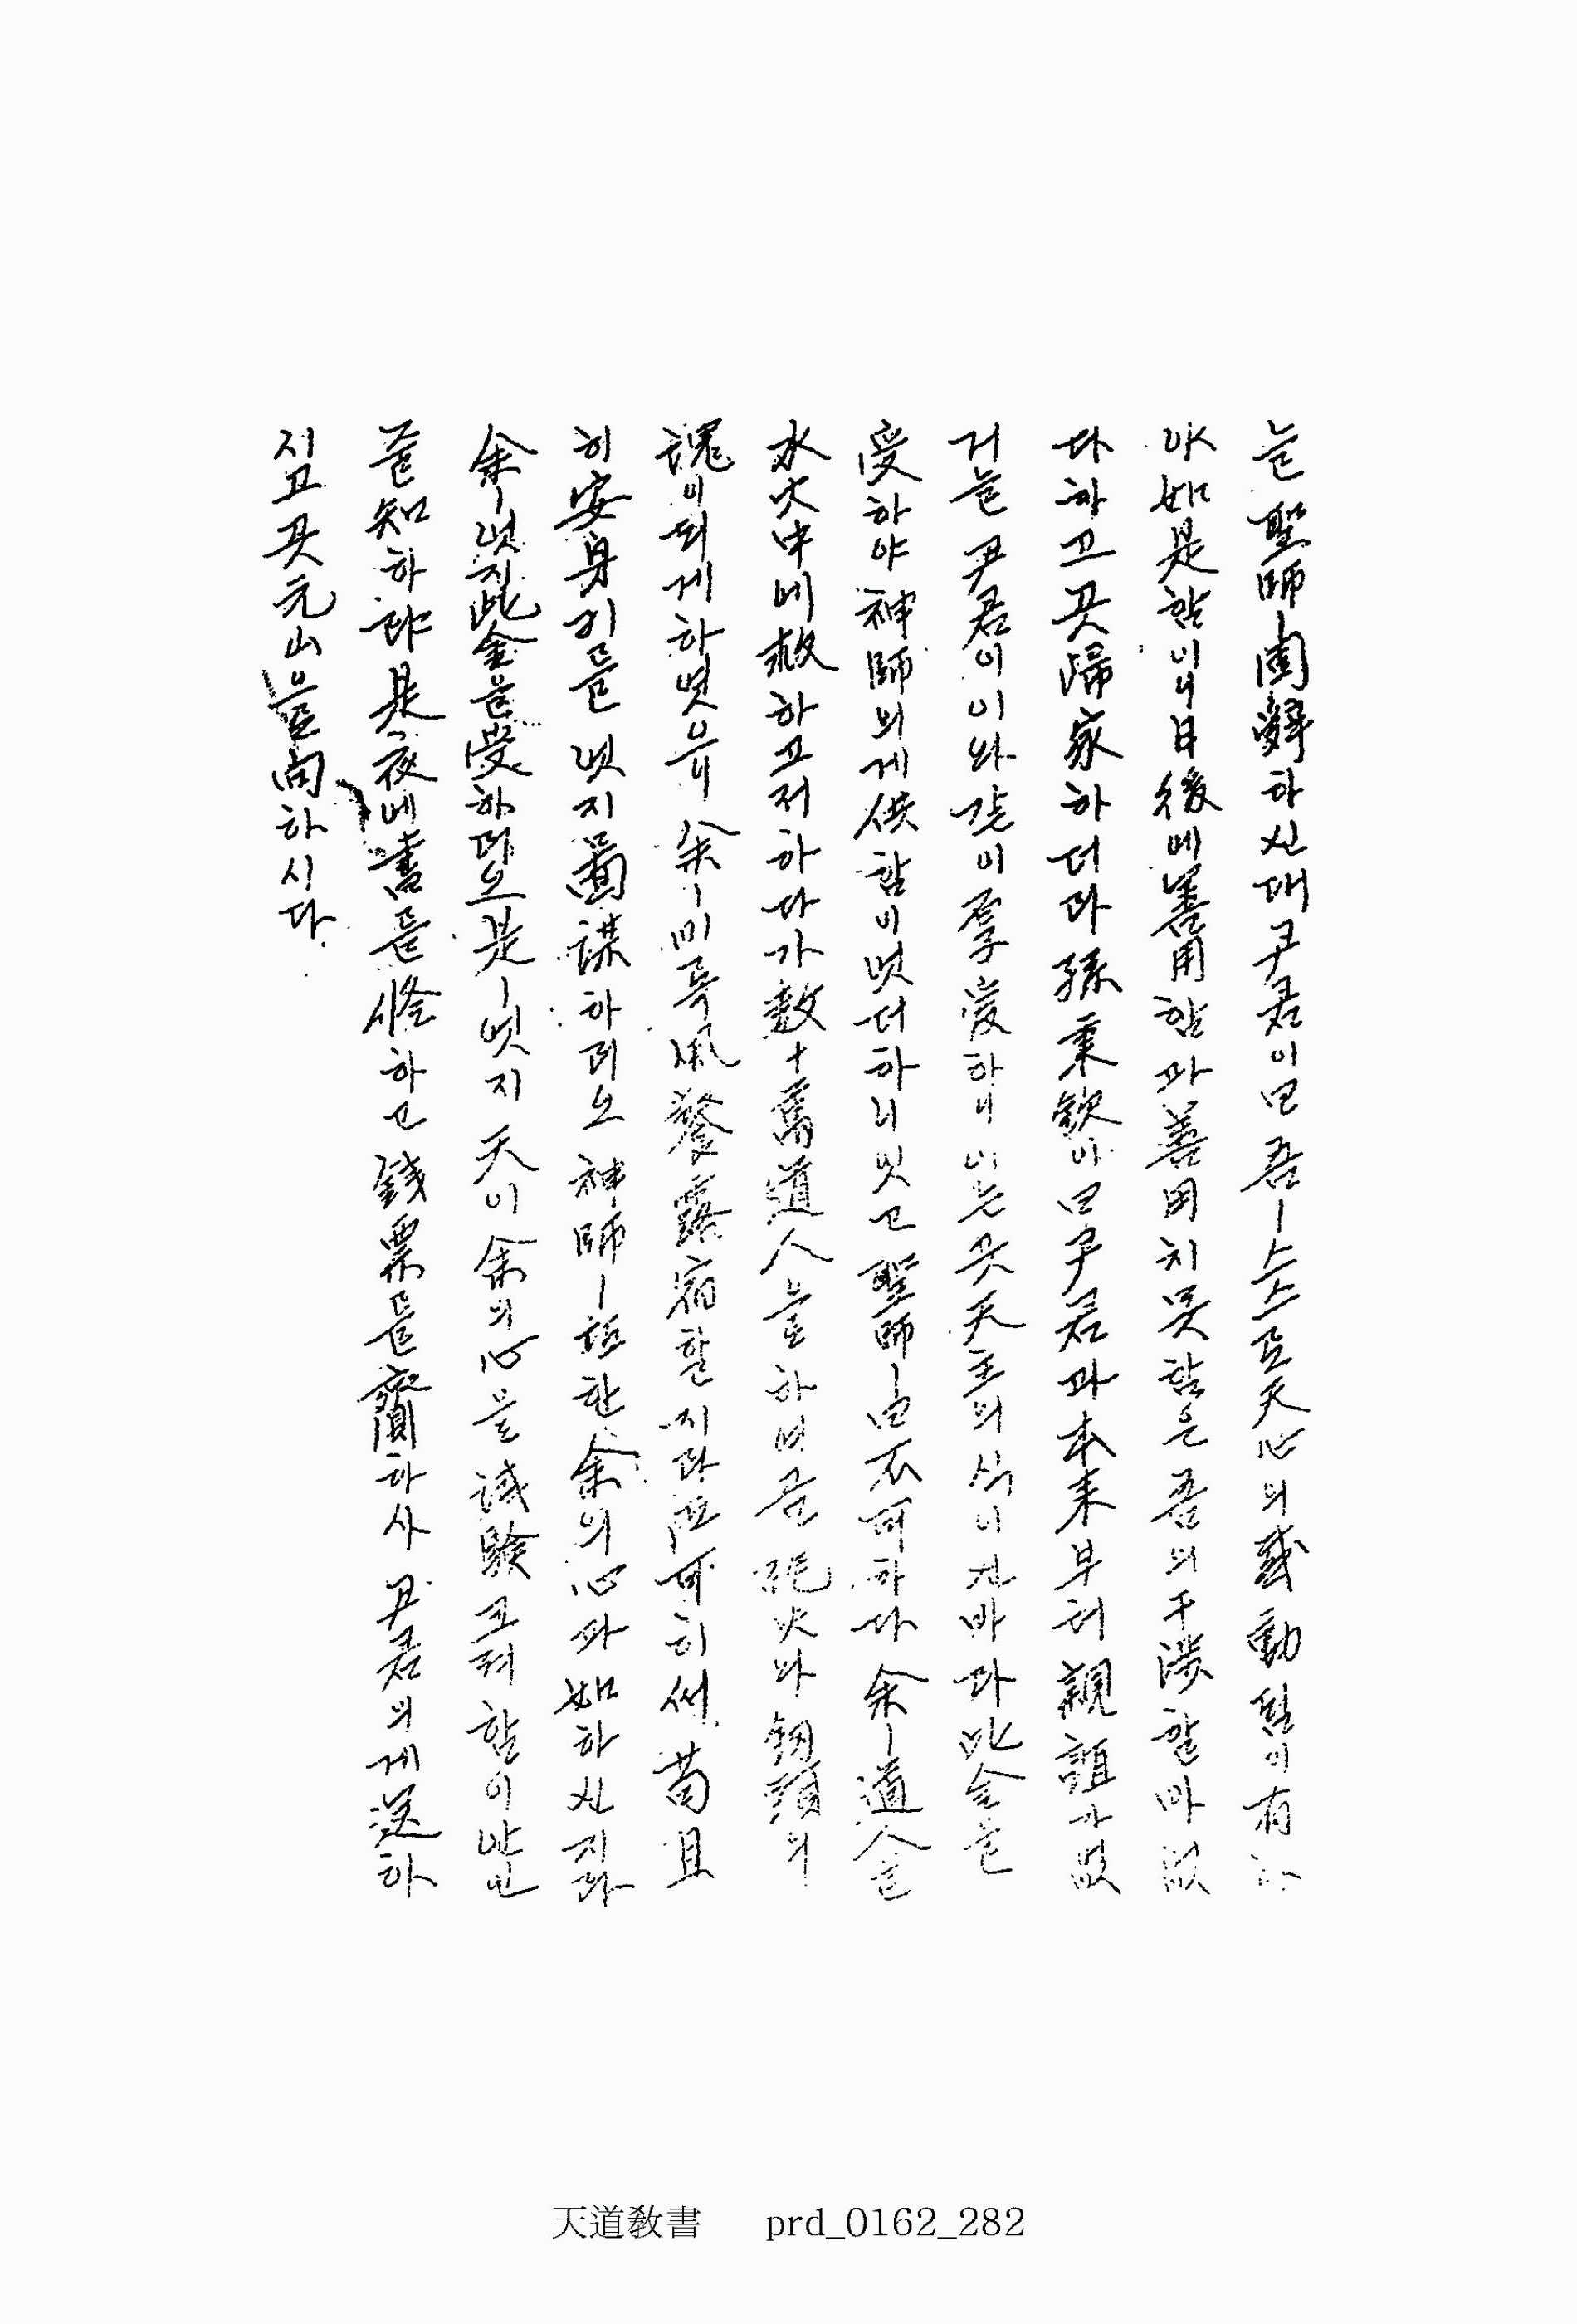 는 聖師ㅣ固辭하신대 尹君이 曰 吾ㅣ스스로 天心의 感動됨이 有하
야 如是함이니 日後에 善用함과 善用치 못함은 吾의 干涉할 바 없
다 하고 곳 歸家하더라 孫秉欽이 曰 尹君과 本來부터 親誼가 없
거늘 尹君이 이와 갓이 厚愛하니 이는 곳 天主의 식이신 바라 此金을
受하야 神師의게 供함이 엇더하니잇고 聖師ㅣ曰 不可하다 余ㅣ道人을
水火中에 救하고저 하다가 數十萬道人을 하여금 砲火와 釰頭의
魂이 되게 하엿은 則 余ㅣ비록 風餐露宿할지라도 可히써 苟且
히 安身키를 엇지 圖謀하리오 神師ㅣ 한 余의 心과 如하신지라
余ㅣ엇지 此金을 受하리오 是ㅣ엇지 天이 余의 心을 試驗코저 함이 안인
줄 知하랴 是夜에 書를 修하고 錢票를 齎하사 尹君의게 送하
시고 곳 元山을 向하시다.
天道敎書 prd_0162_282